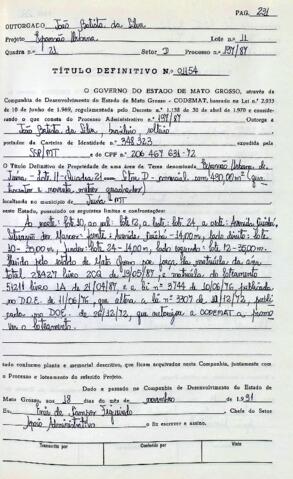 PAG. 231
OUTORGADO João Batista da Silva
Projeto Expansão Urbana Lote n.º 11
Quadra n.º 21 Setor D Processo n.º 197/87
TÍTULO DEFINITIVO N.º 01154
O GOVERNO DO ESTADO DE MATO GROSSO, através da
Companhia de Desenvolvimento do Estado de Mato Grosso - CODEMAT, baseado na Lei n.º 2.933
de 10 de junho de 1969, regulamentada pelo Decreto n.º 1.138 de 30 de abril de 1970 e considerando
o que consta do Processo Administrativo n.º 197/87 Outorga a
João Batista da Silva, brasileiro, solteiro
portador da Carteira de Identidade n.º 348323 expedida pela
SSP/MT e do CPF n.º 206 467 631-72
O Título Definitivo de Propriedade de uma área de Terra denominada Expansão Urbana de
Juína - Lote 11 - Quadra 21 - Setor D - com 490,00m² (qua
trocentos e noventa metros quadrados)
localizada no município de Juína - MT
neste Estado, possuindo os seguintes limites e confrontações:
Ao norte: lote 10, ao sul: lote 12, a leste: lote 24, a oeste: Avenida
- 14,00m, lado direito: lote
10 - 35,00m, fundos: lote 24 - 14,00m, lado esquerdo: lote 12 - 35,00m.
Havido pelo Estado de Mato Grosso por força da matrícula da área
total 28427 livro 2CQ de 19/05/87 e matrícula do loteamento
51211 livro 1A de 21/04/87 e a lei nº 3744 de 10/06/76 publicada
no D.O.E. de 11/06/76, que altera a lei nº 3307 de 12/12/72, publi
cada no D.O.E. de 26/12/72, que autoriza a CODEMAT a promo
ver o loteamento.
tado conforme planta e memorial descritivo, que ficam arquivados nesta Companhia, juntamente com
o Processo e loteamento do referido Projeto.
Dado e passado na Companhia de Desenvolvimento do Estado de
Mato Grosso, aos 18 dias do mês de novembro de 1.991
Eu, Figueiredo Chefe do Setor
Apoio Administrativo o fiz escrever e assino.
Transcrito por Conferido por Visto